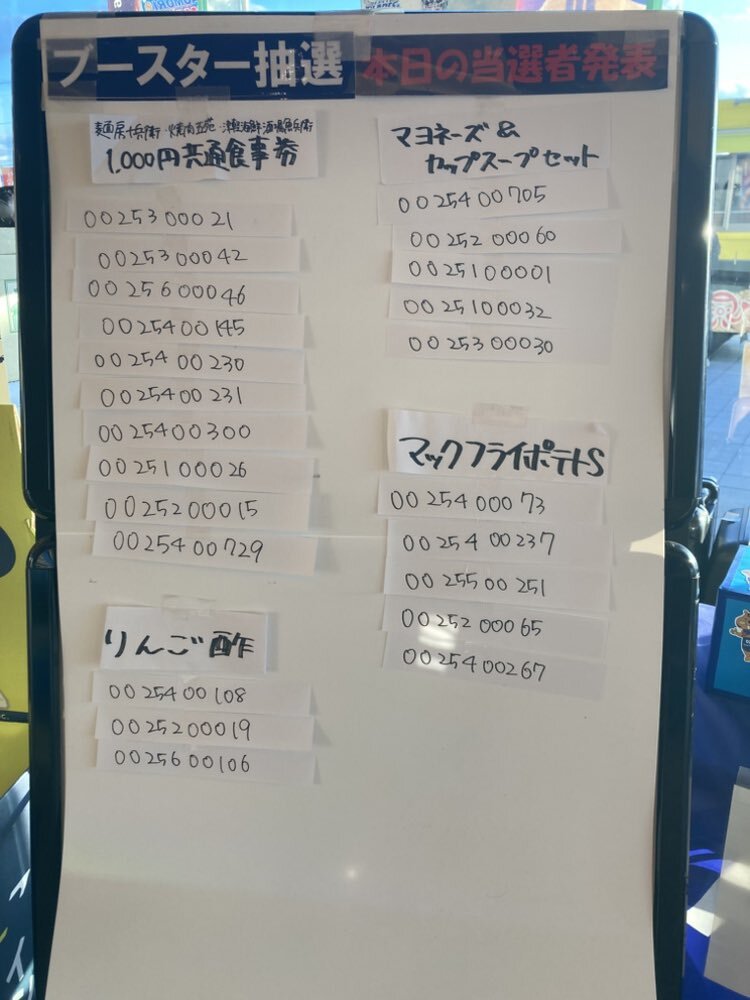 ブースター抽選 本日の当選者発表
1,000円共通食事券
0025300021
0025300042
0025600046
0025400145
0025400230
0025400231
0025400300
0025100026
0025200015
0025400729
りんご酢
0025400108
0025200019
0025600106
マヨネーズ&
カップスープセット
0025400705
0025200060
0025100001
0025100032
0025300030
マックフライポテトS
0025400073
0025400237
0025500251
0025200065
0025400267